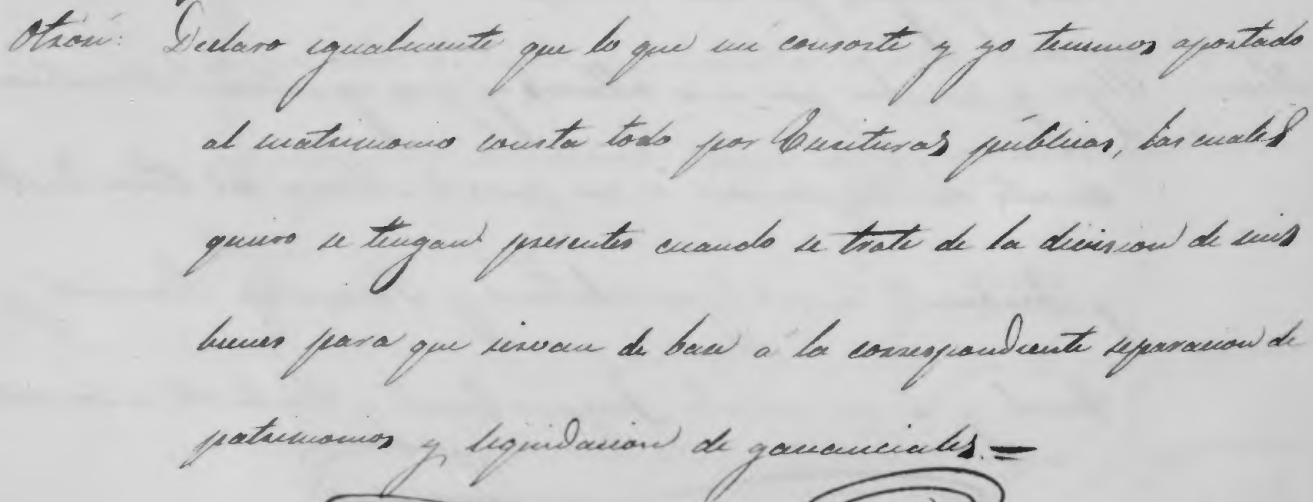 Otrosí: Declaro igualmente que lo que mi consorte y yo tenemos aportado
al matrimonio consta todo por Escrituras públicas, las cuales
quiero se tengan presentes cuando se trate de la division de mis
bienes para que sirvan de base á la correspondiente separacion de
patrimonios y liquidacion de gananciales.=